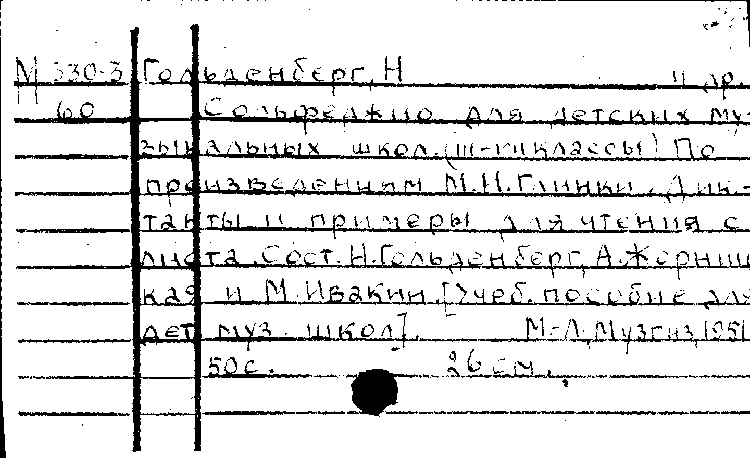 М 330-3 Гольденберг, Н и др.
60 Сольфеджио для детских му-
зыкальных школ. (III-VII классы) По
произведениям М.И. Глинки. Дик-
танты и примеры для чтения с
листа. Сост. Н. Гольденберг, А. Жерниц-
кая и М. Ивакин. [Учеб. пособие для
дет. муз. школ]. М.-Л, Музгиз, 1951
50 с. 26 см.